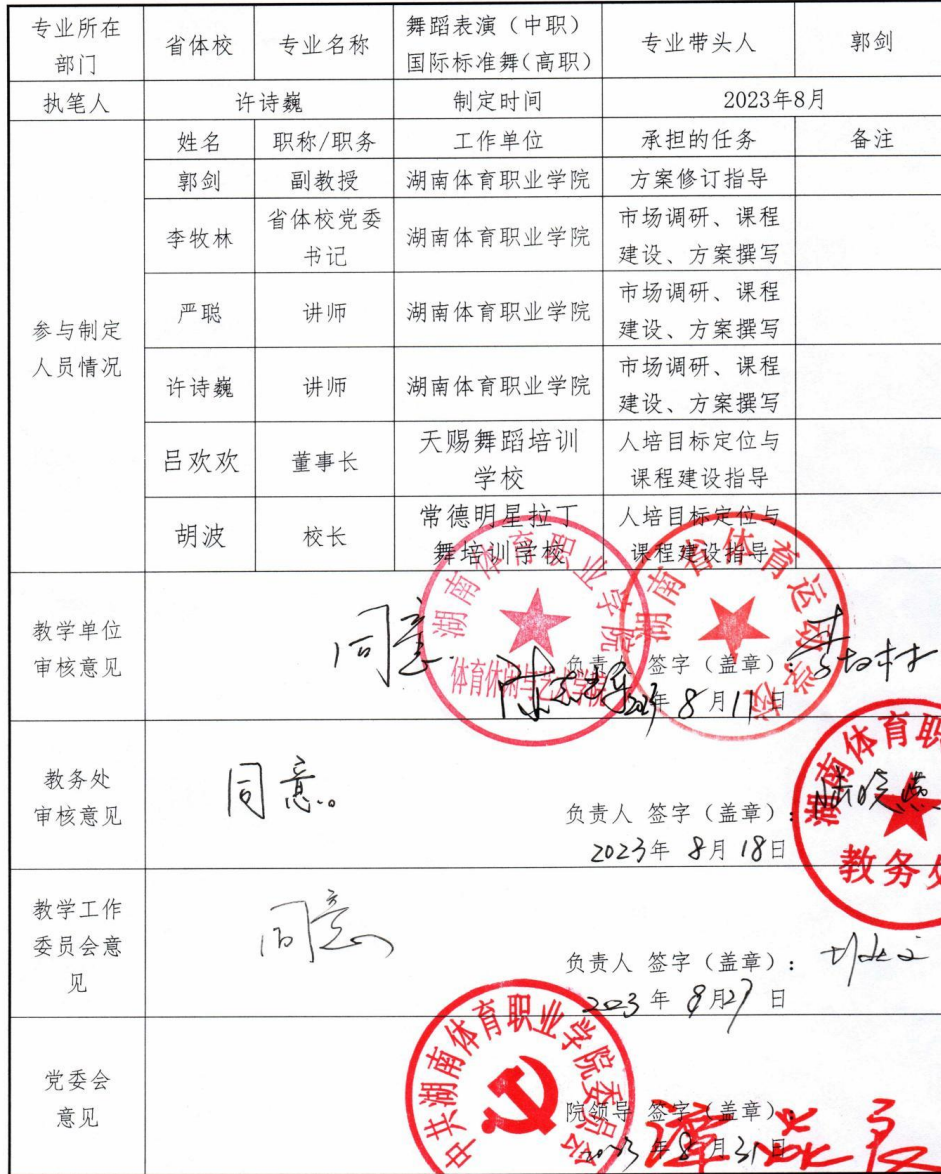 专业所在
部门
省体校
专业名称
舞蹈表演（中职）
国际标准舞(高职)
专业带头人
郭剑
执笔人
许诗巍
制定时间
2023年8月
参与制定
人员情况
姓名
职称/职务
工作单位
承担的任务
备注
郭剑
副教授
湖南体育职业学院
方案修订指导
李牧林
省体校党委
书记
湖南体育职业学院
市场调研、课程
建设、方案撰写
严聪
讲师
湖南体育职业学院
市场调研、课程
建设、方案撰写
许诗巍
讲师
湖南体育职业学院
市场调研、课程
建设、方案撰写
吕欢欢
董事长
天赐舞蹈培训
学校
人培目标定位与
课程建设指导
胡波
校长
常德明星拉丁
舞培训学校
人培目标定位与
课程建设指导
教学单位
审核意见
同意.
湖南体育职业学院
体育休闲与艺术学院
湖南省体育运动学校
负责人 签字（盖章）：
年 8月17日
教务处
审核意见
同意。
负责人 签字（盖章）：
2023年 8月 18日
湖南体育职
教务处
教学工作
委员会意
见
同意
负责人 签字（盖章）：
2023 年 8月27 日
党委会
意见
中共湖南体育职业学院委员会
院领导 签字（盖章）：
2023 年 8 月 31日